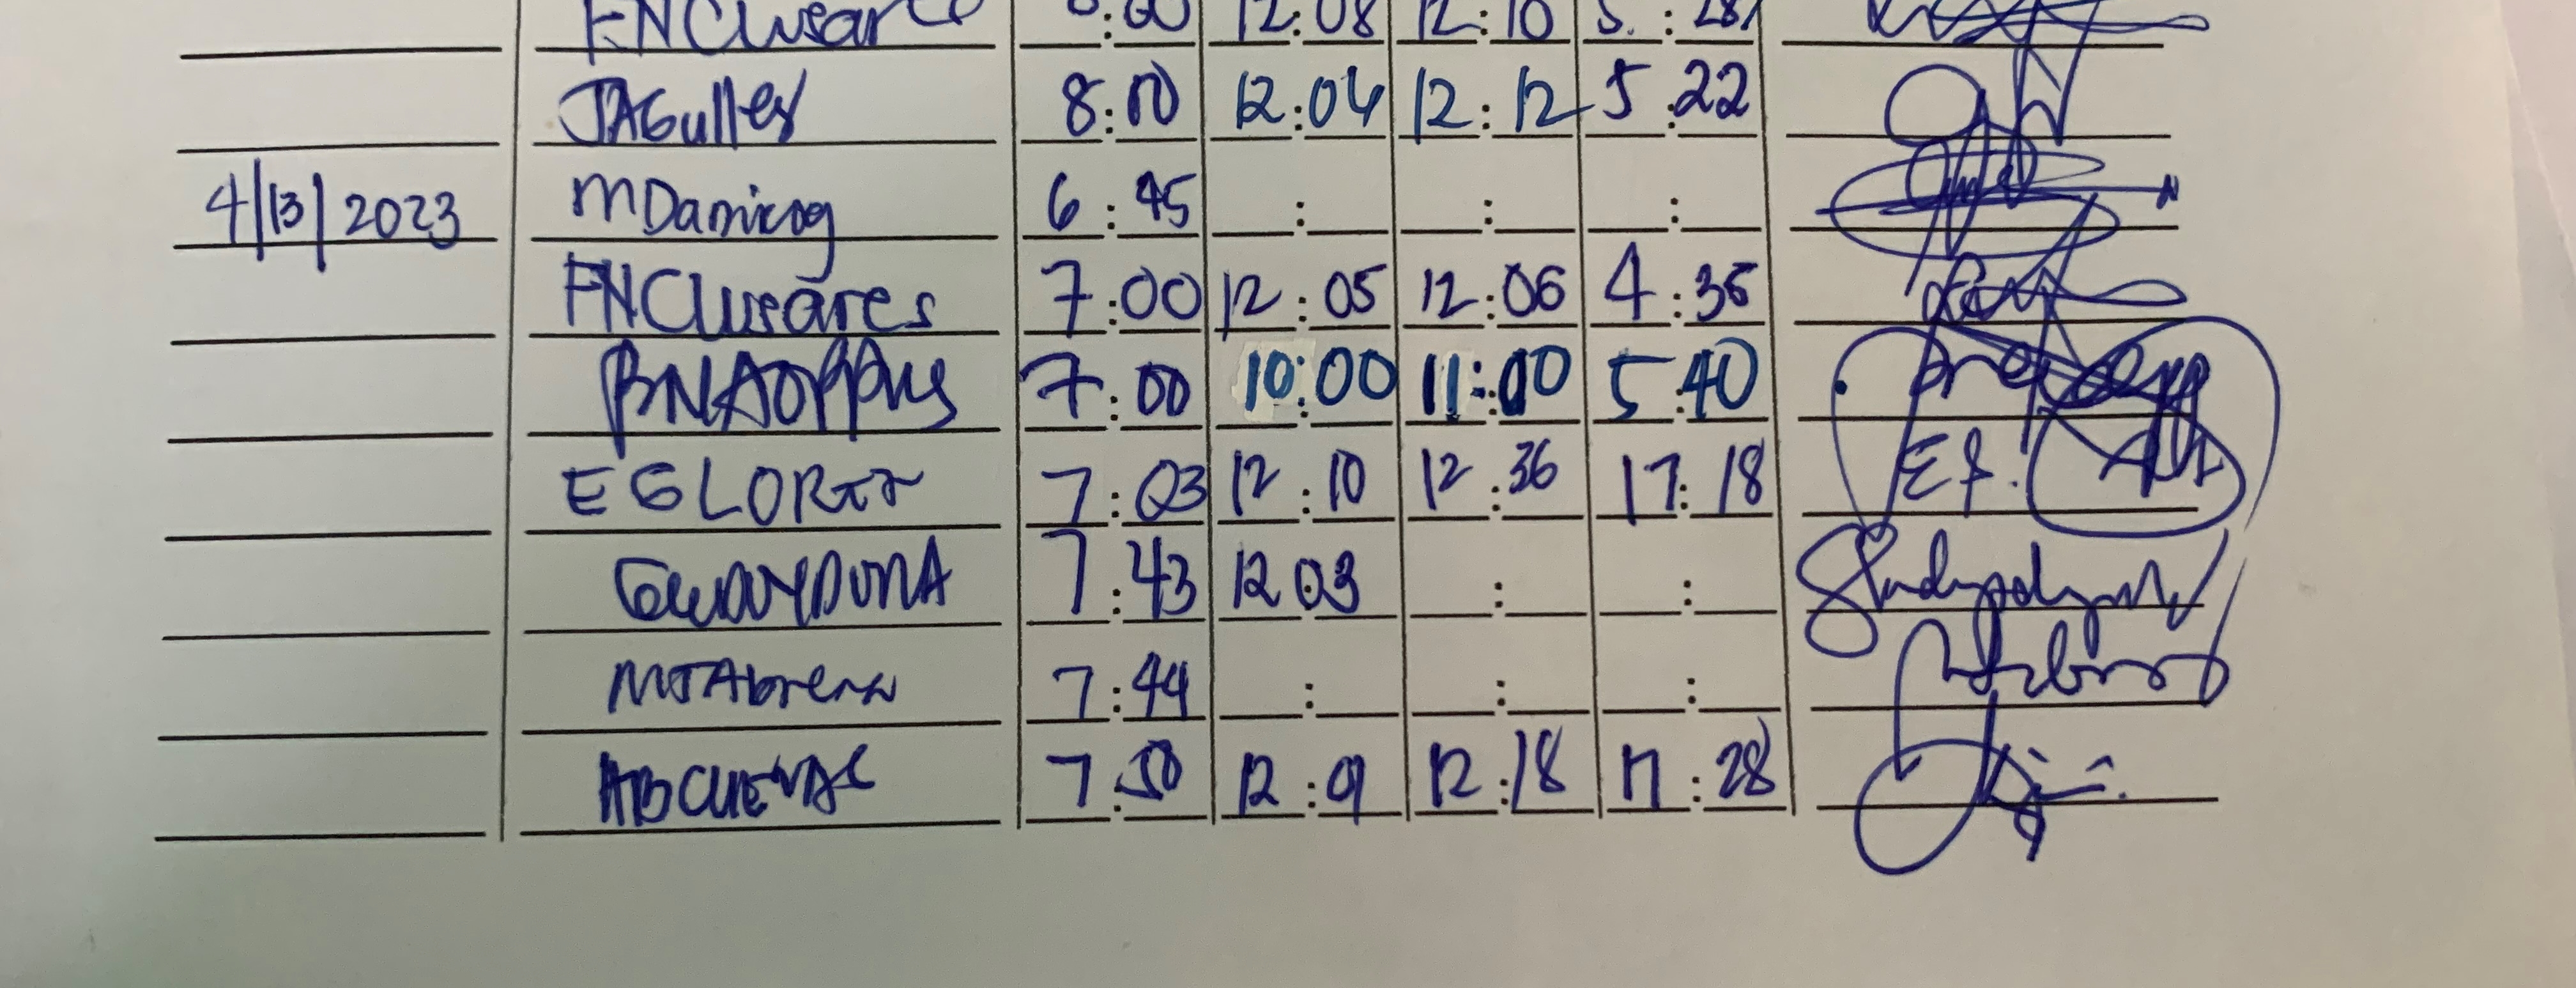 FNCLusares 8:00 12:08 12:10 5:28
JAGulles 8:00 12:04 12:12 5:22
4/13/2023 MDanicog 6:45
FNCLusares 7:00 12:05 12:06 4:36
BNAOppus 7:00 10:00 11:00 5:40
EGLORIA 7:03 12:10 12:36 17:18 Ef.
7:43 12:03
MTAbrera 7:44
ABCUEVAS 7:50 12:09 12:18 17:28